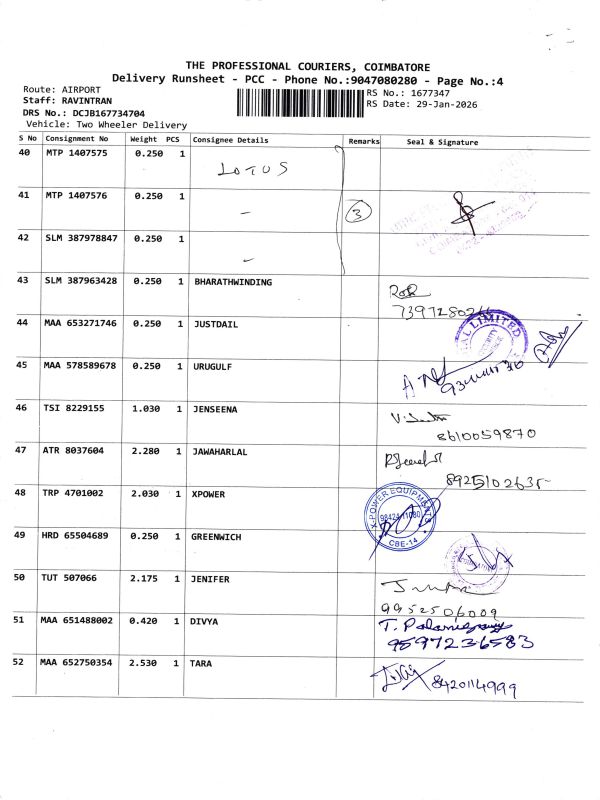 THE PROFESSIONAL COURIERS, COIMBATORE
Delivery Runsheet - PCC - Phone No.:9047080280 - Page No.:4
Route: AIRPORT
Staff: RAVINTRAN
DRS No.: DCJB167734704
Vehicle: Two Wheeler Delivery
RS No.: 1677347
RS Date: 29-Jan-2026
S No Consignment No Weight PCS Consignee Details Remarks Seal & Signature
40 MTP 1407575 0.250 1 LOTUS
41 MTP 1407576 0.250 1 - 3
42 SLM 387978847 0.250 1 -
43 SLM 387963428 0.250 1 BHARATHWINDING
44 MAA 653271746 0.250 1 JUSTDAIL LIMITED
45 MAA 578589678 0.250 1 URUGULF
46 TSI 8229155 1.030 1 JENSEENA
8610059870
47 ATR 8037604 2.280 1 JAWAHARLAL
8925102635
48 TRP 4701002 2.030 1 XPOWER
X-POWER EQUIPMENTS
CBE-14
49 HRD 65504689 0.250 1 GREENWICH
50 TUT 507066 2.175 1 JENIFER
9952506009
51 MAA 651488002 0.420 1 DIVYA T. Palanisamy
9597236583
52 MAA 652750354 2.530 1 TARA
8420114999